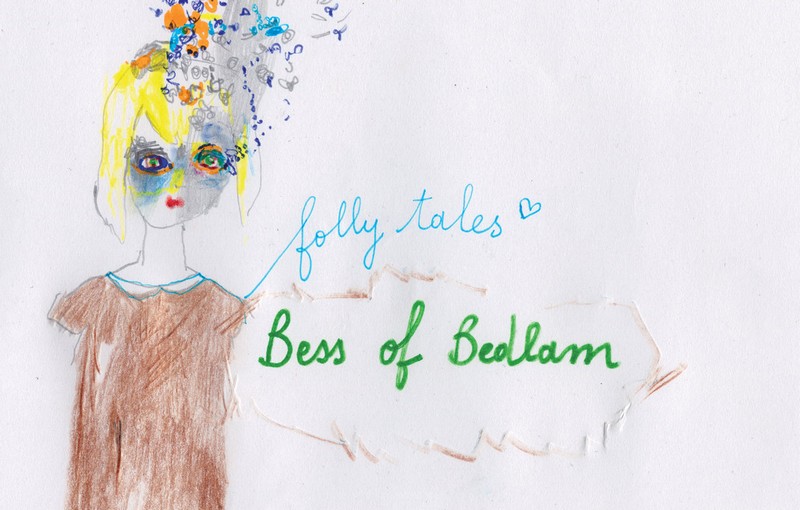 folly tales
Bess of Bedlam